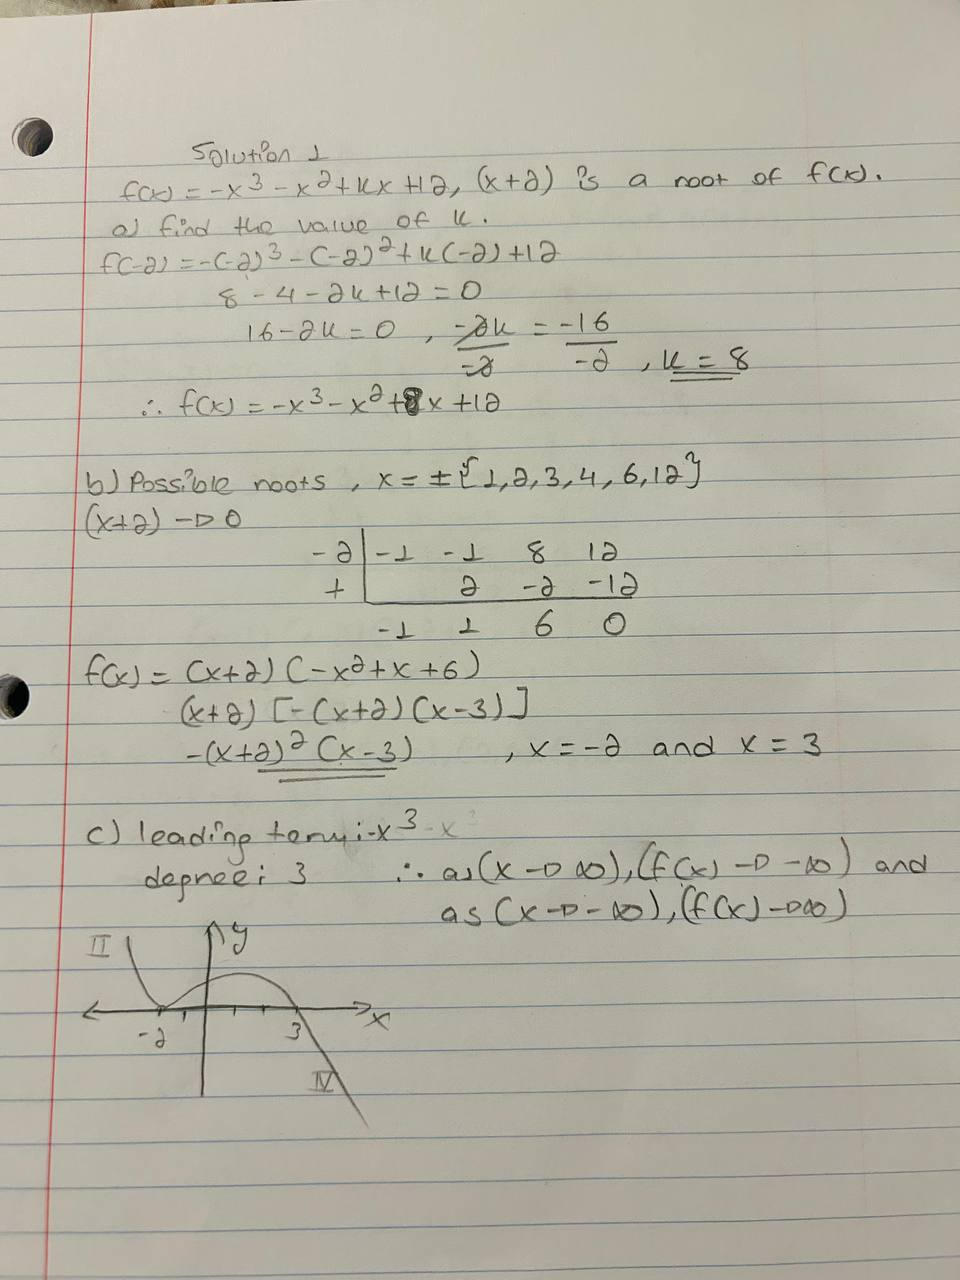 Solution 1
f(x) = -x³ - x² + kx + 12, (x+2) is a root of f(x).
a) find the value of k.
f(-2) = -(-2)³ - (-2)² + k(-2) + 12
8 - 4 - 2k + 12 = 0
16 - 2k = 0 , -2k/-2 = -16/-2 , k = 8
∴ f(x) = -x³ - x² + 8x + 12
b) Possible roots , x = ±{1, 2, 3, 4, 6, 12}
(x+2) → 0
-2 | -1 -1 8 12
+ | 2 -2 -12
-1 1 6 0
f(x) = (x+2) (-x² + x + 6)
(x+2) [-(x+2) (x-3)]
-(x+2)² (x-3) , x = -2 and x = 3
c) leading term: -x³ -x³
degree: 3 ∴ as (x → ∞), (f(x) → -∞) and
as (x → -∞), (f(x) → ∞)
II y
-2 3 x
IV